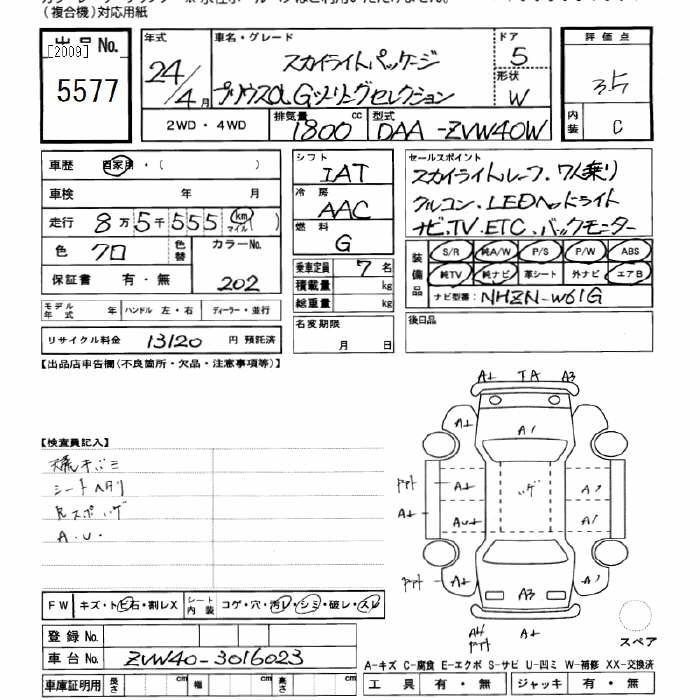 (複合機)対応用紙
[2009]
出品No.
5577
年式
24/4月
車名・グレード
スカイライトパッケージ
プリウスα Gツーリングセレクション
ドア
5
形状
W
評価点
3.5
内装
C
2WD・4WD
排気量
1800 cc
型式
DAA-ZVW40W
車歴 自家用・( )
車検 年 月
走行 8万5千555 km マイル ( )
色 クロ 色替
カラーNo.
202
保証書 有・無
モデル年式 年 ハンドル 左・右 ディーラー・並行
リサイクル料金 13120 円 預託済
シフト
IAT
冷房
AAC
燃料
G
乗車定員 7 名
積載量 kg
総重量 kg
名変期限
月 日
セールスポイント
スカイライトルーフ、7人乗り
クルコン、LEDヘッドライト
ナビ、TV、ETC、バックモニター
装備品
S/R 純A/W P/S P/W ABS
純TV 純ナビ 革シート 外ナビ エアB
ナビ型番: NHZN-W61G
後日品
【出品店申告欄(不良箇所・欠品・注意事項等)】
【検査員記入】
A.U.
FW キズ・トビ石・割レX
シート内装 コゲ・穴・汚レ・シミ・破レ・スレ
登録No.
車台No. ZVW40-3016023
車庫証明用 長さ cm 幅 cm 高さ cm
A3
A1
A3
スペア
A-キズ C-腐食 E-エクボ S-サビ U-凹ミ W-補修 XX-交換済
工具 有・無 ジャッキ 有・無